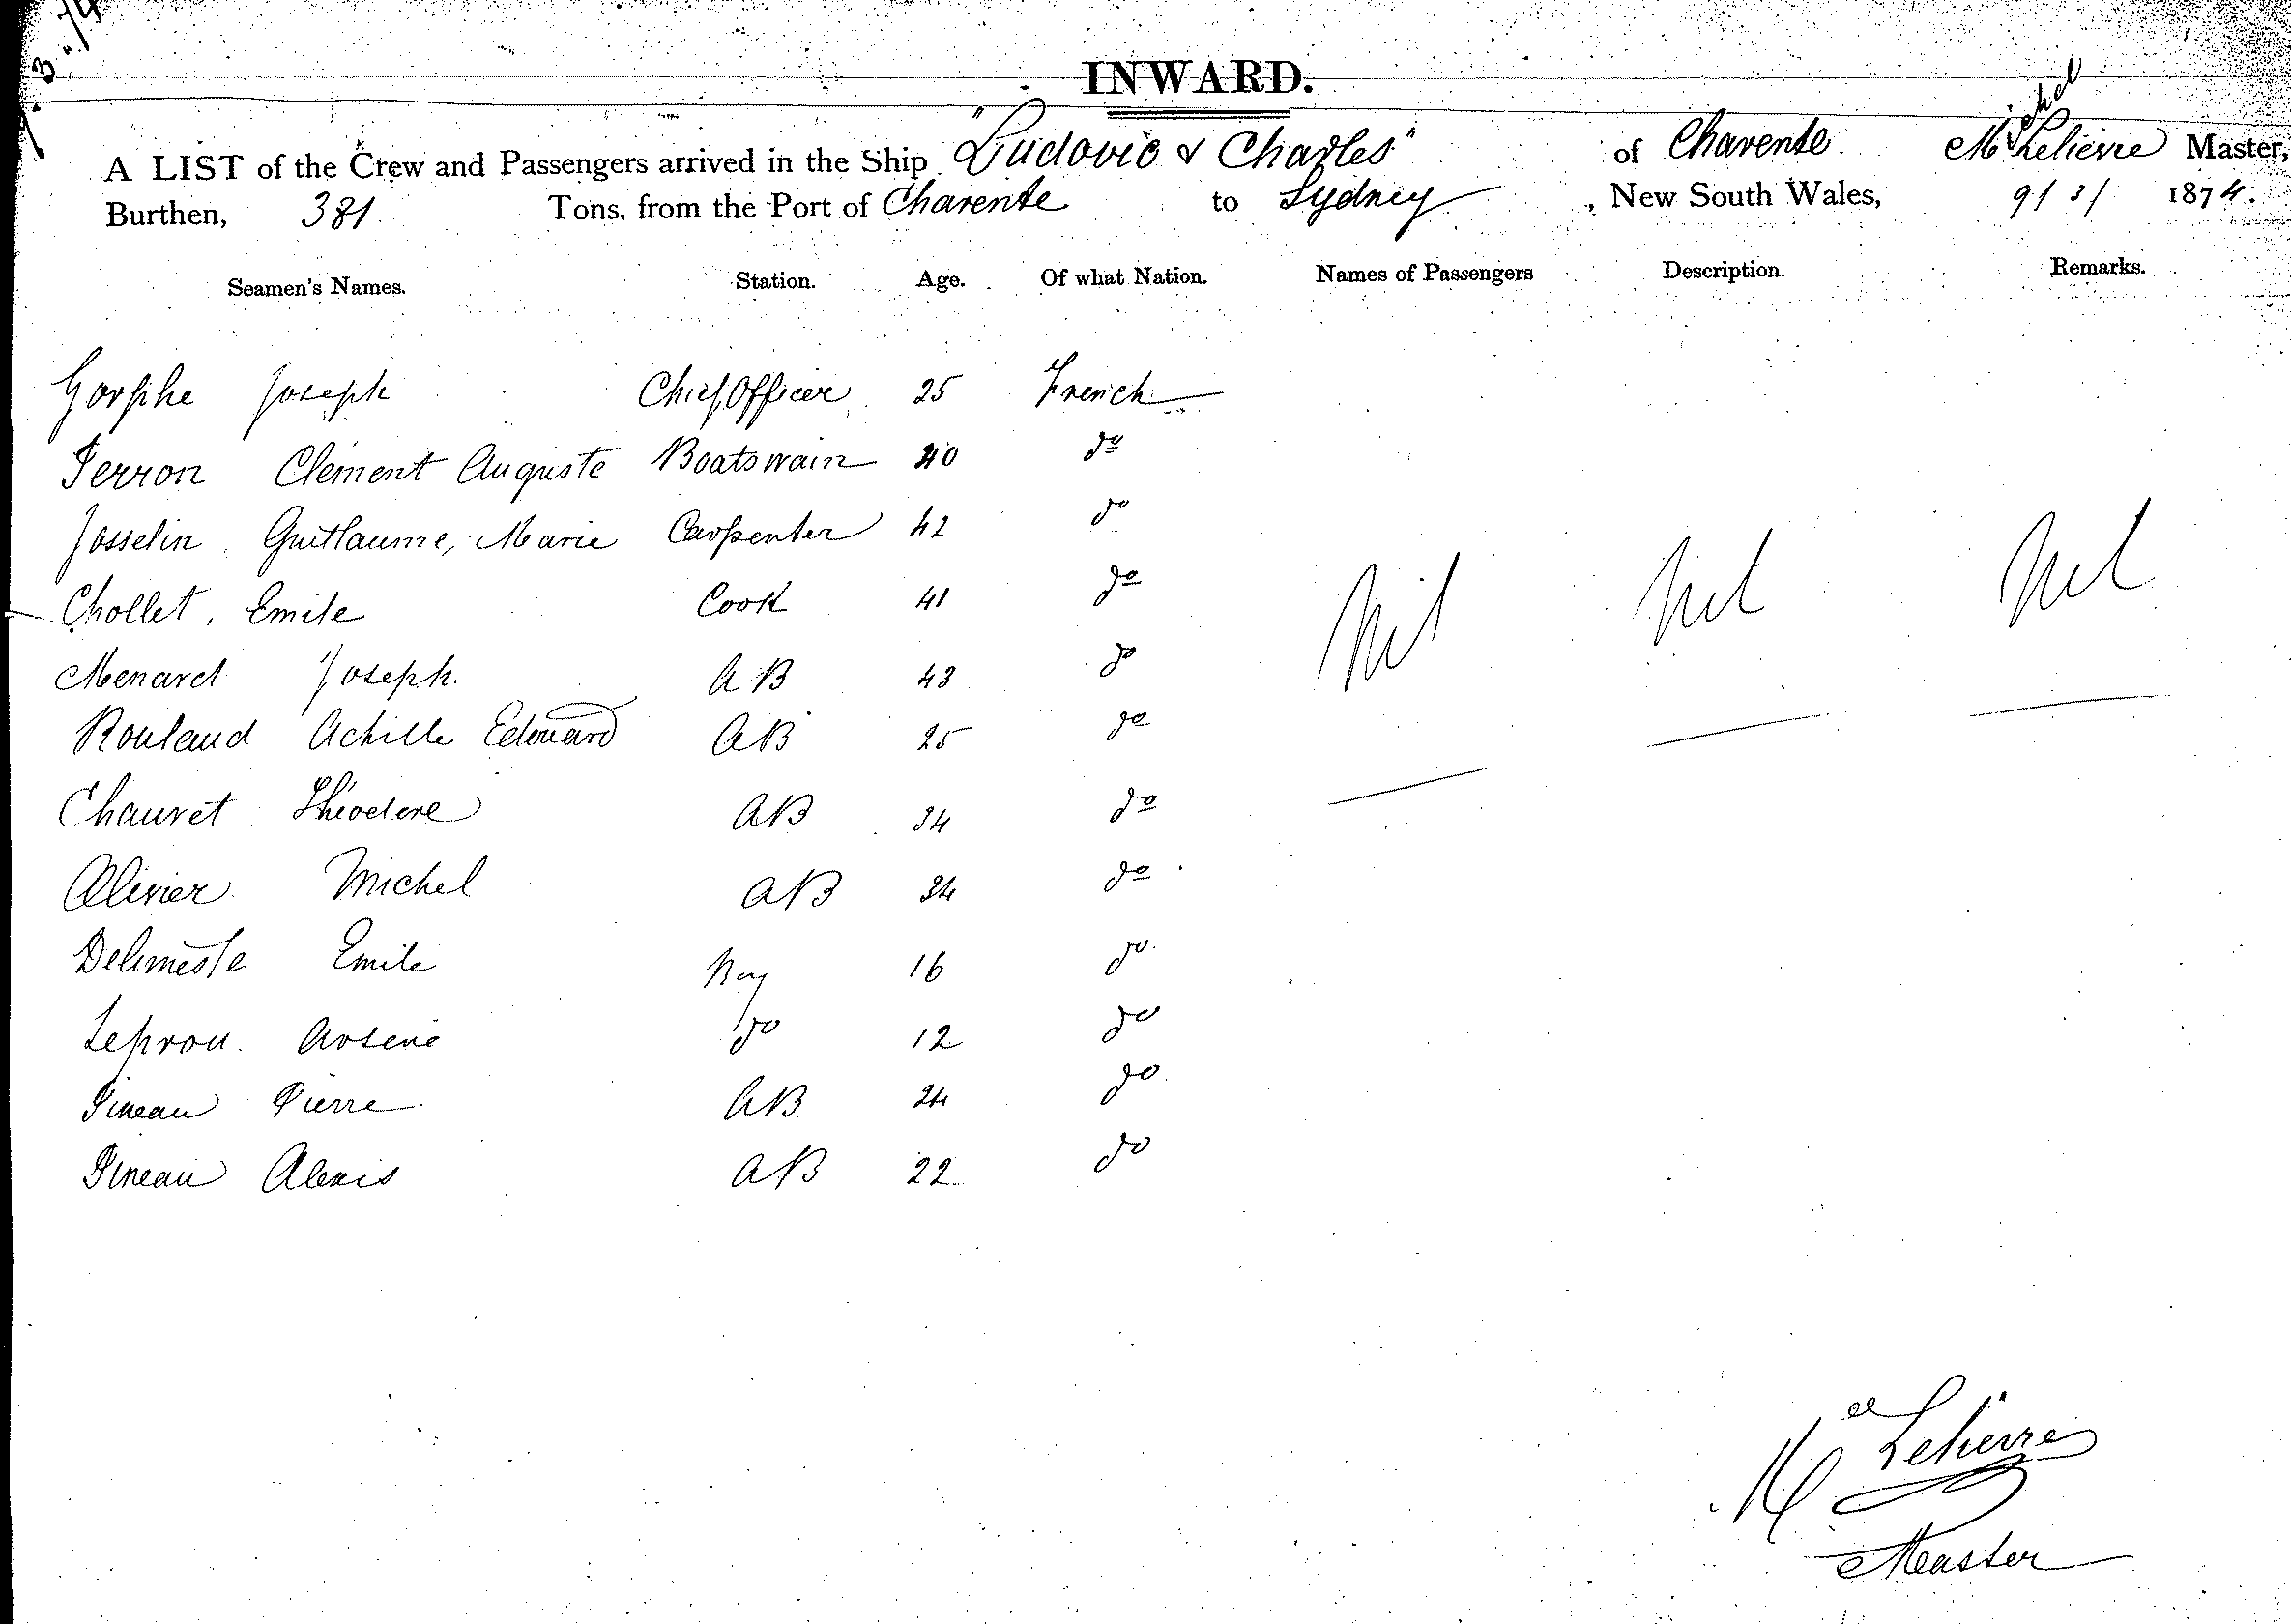 INWARD.
A LIST of the Crew and Passengers arrived in the Ship "Ludovic & Charles" of Charente Michel Lelievre Master,
Burthen, 381 Tons, from the Port of Charente to Sydney, New South Wales, 9/3/ 1874.
Seamen's Names. Station. Age. Of what Nation. Names of Passengers Description. Remarks.
Gorphe Joseph Chief Officer 25 French
Ferron Clement Auguste Boatswain 40 do
Josselin Guillaume, Marie Carpenter 42 do
Chollet, Emile Cook 41 do
Nil Nil Nil
Menard Joseph. AB 43 do
Rouland Achille Edouard AB 25 do
Chauvet Théodore AB 34 do
Olivier Michel AB 34 do
Emile Boy 16 do
Leprou. Arsene do 12 do
Pineau Pierre AB. 24 do
Pineau Alexis AB 22 do
Mel Lelievre
Master